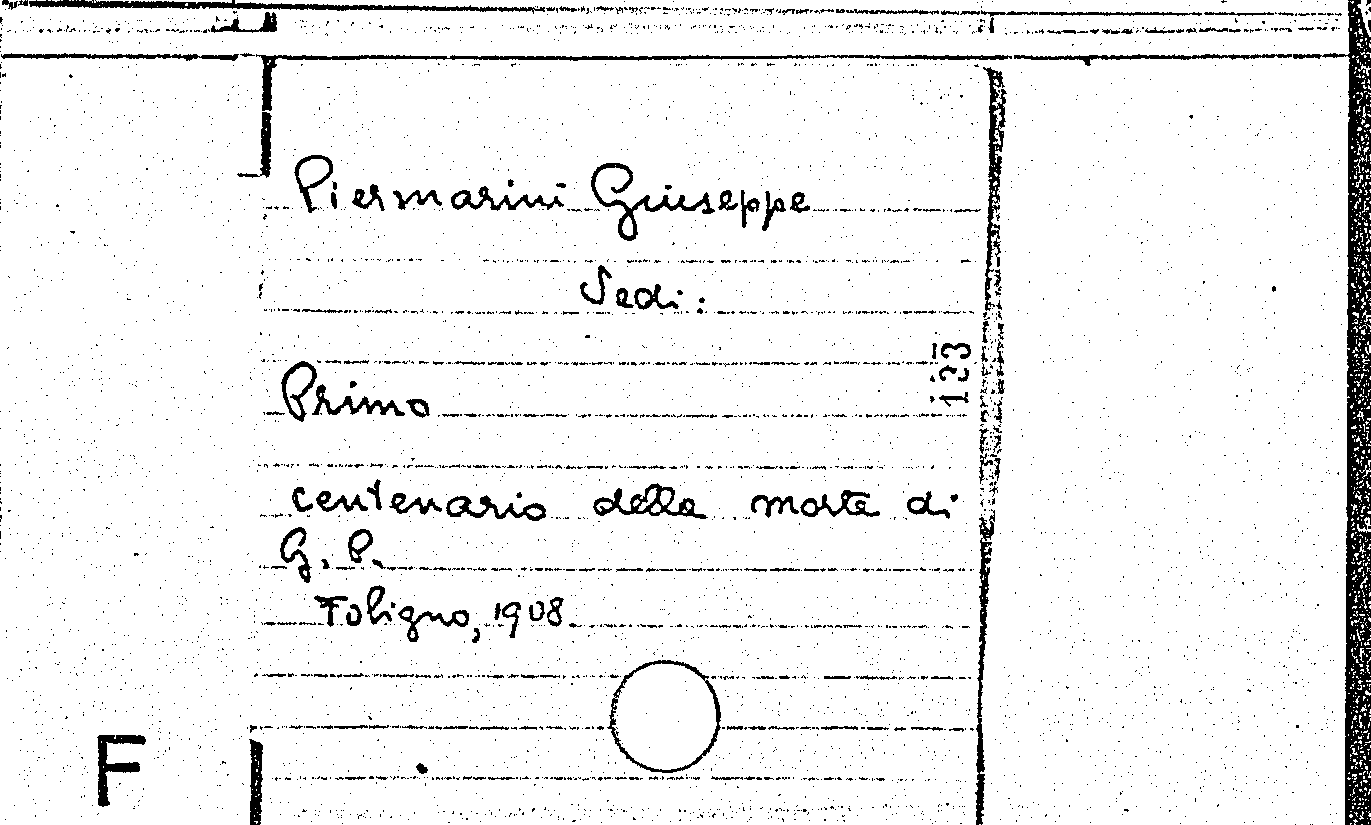 Piermarini Giuseppe
Vedi:
123
Primo
centenario della morte di
G. P.
Foligno, 1908
F